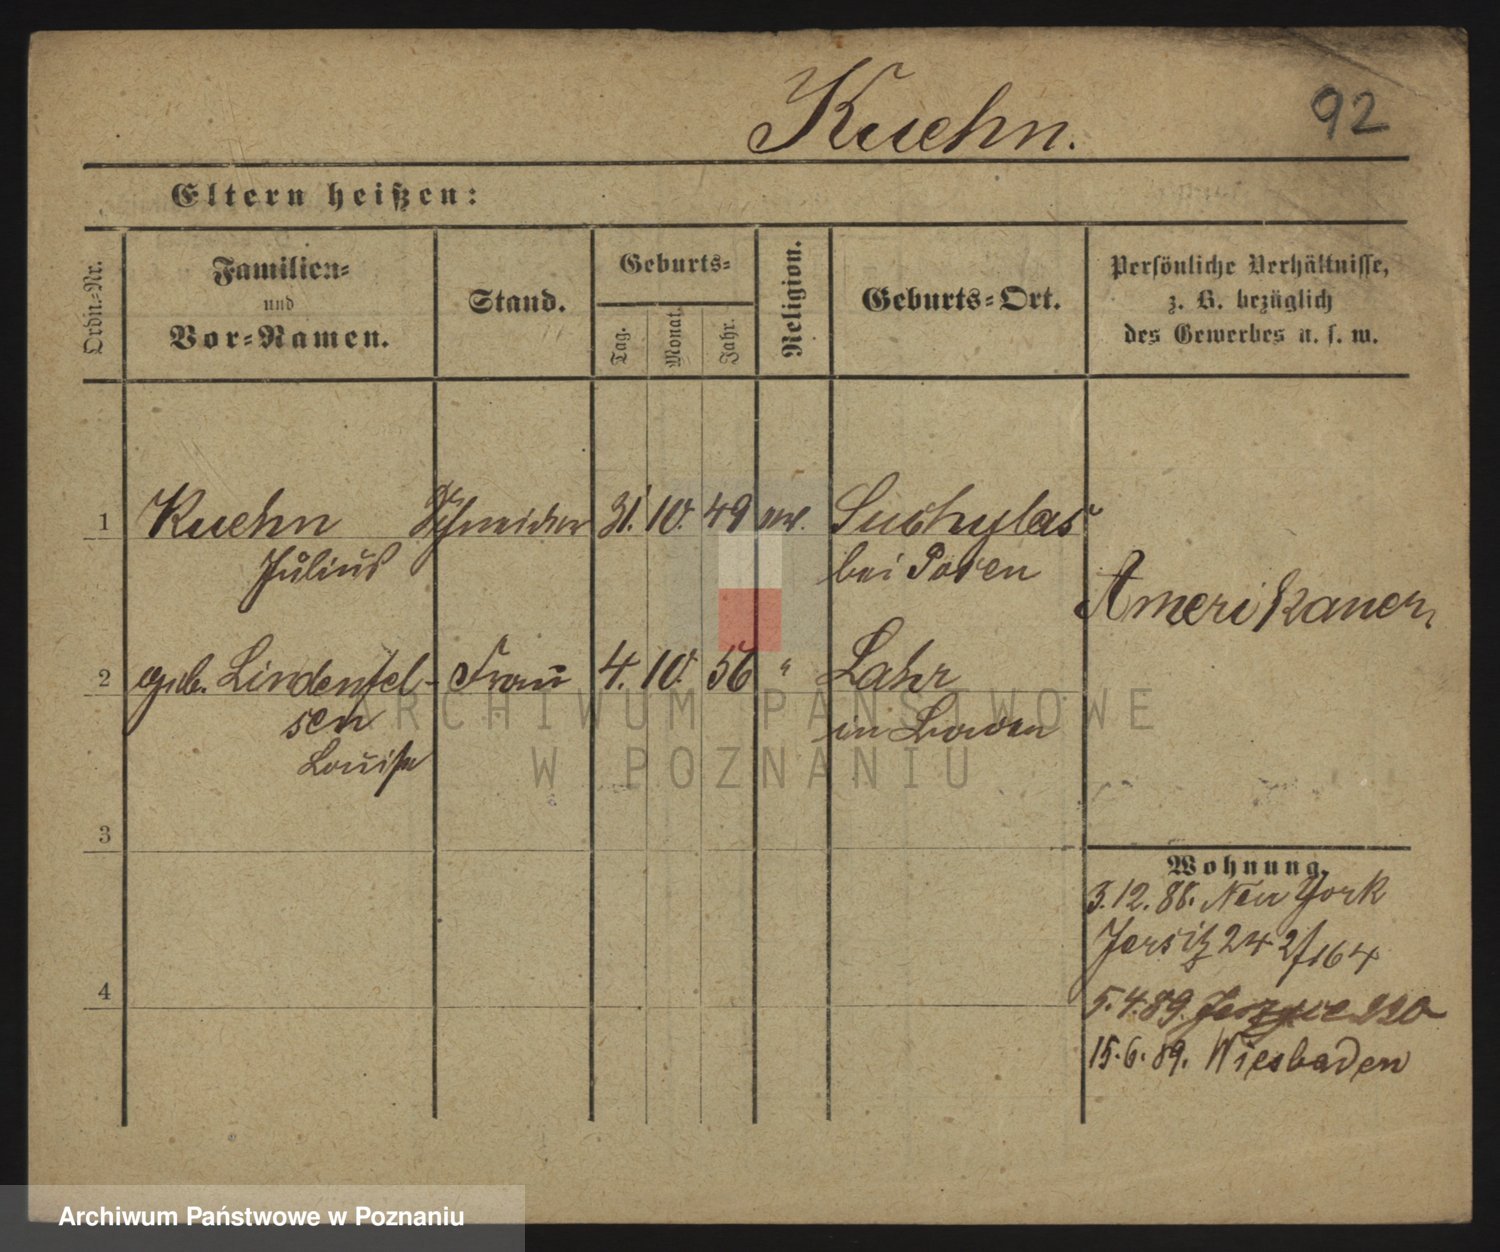 Kuehn.
92
Eltern heißen:
Ordn.-Nr.
Familien-
und
Vor-Namen.
Stand.
Geburts-
Tag.
Monat.
Jahr.
Religion.
Geburts-Ort.
Persönliche Verhältnisse,
z. B. bezüglich
des Gewerbes u. s. w.
1 Kuehn Schneider 31. 10. 49 ev. Suchylas
Julius bei Posen
Amerikaner,
2 geb. Lindenfel- Frau 4. 10. 56 " Lahr
sen in Baden
Louise
3
Wohnung.
3.12.88. New York
Jersitz 24 2/164
4
5.4.89. 220
15.6.89. Wiesbaden
ARCHIWUM PAŃSTWOWE
W POZNANIU
Archiwum Państwowe w Poznaniu